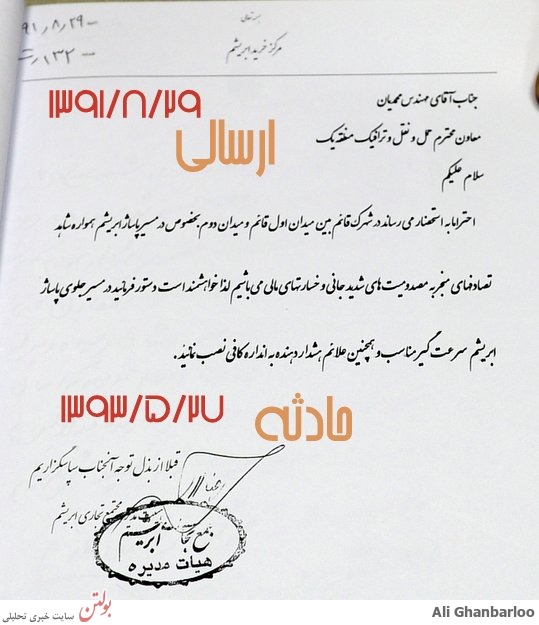 بسمه تعالی
۹۱/۸/۲۹ –
مرکز خرید ابریشم
جناب آقای مهندس محمدیان
۱۳۹۱/۸/۲۹
معاون محترم حمل و نقل و ترافیک منطقه یک
ارسالی
سلام علیکم
احتراما به استحضار می رساند در شهرک قائم بین میدان اول قائم و میدان دوم بخصوص در مسیر پاساژ ابریشم همواره شاهد
تصادفهای منجر به مصدومیت های شدید جانی و خسارتهای مالی می باشیم لذا خواهشمند است دستور فرمائید در مسیر جلوی پاساژ
ابریشم سرعت گیر مناسب و همچنین علائم هشدار دهنده به اندازه کافی نصب نمائید.
۱۳۹۳/۵/۲۷
حادثه
قبلا از بذل توجه آنجناب سپاسگزاریم
مجتمع تجاری ابریشم
هیات مدیره
بولتن سایت خبری تحلیلی
Ali Ghanbarloo